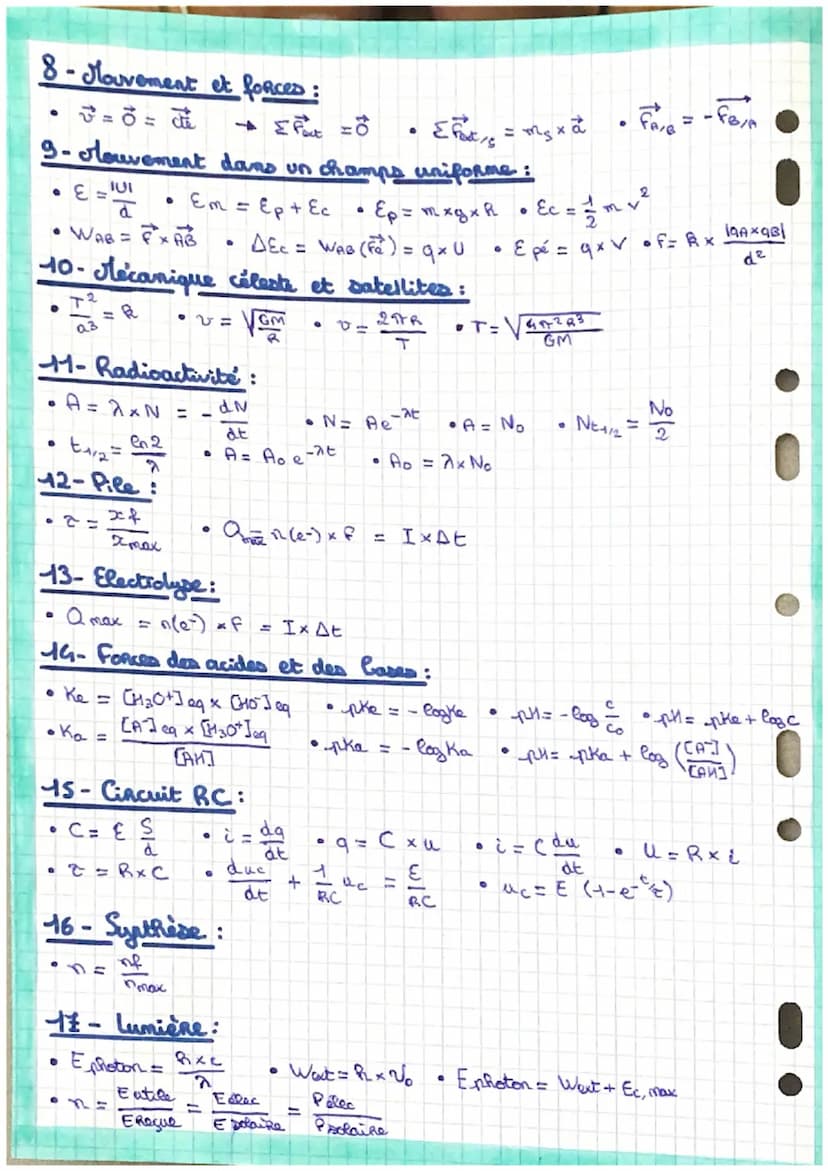 8 - Mouvement et forces :
• v⃗ = 0⃗ = cte → ΣF⃗ext = 0⃗ • ΣF⃗ext/S = mS × a⃗ • F⃗A/B = -F⃗B/A
9 - Mouvement dans un champs uniforme :
• E = |U|/d • Em = Ep + Ec • Ep = m×g×h • Ec = 1/2 m v²
• WAB = F⃗ × AB⃗ • ΔEc = WAB (F⃗e) = q×U • Epé = q×V • F = k × |qA×qB|/d²
10 - Mécanique céleste et satellites :
• T²/a³ = k • v = √(GM/R) • v = 2πR/T • T = √(4π²R³/GM)
11 - Radioactivité :
• A = λ×N = - dN/dt • N = Ae^-λt • A = N₀ • Nt1/2 = N₀/2
• t1/2 = ln2/λ • A = A₀ e^-λt • A₀ = λ×N₀
12 - Pile :
• τ = xf/xmax • Qmax = n(e-) × F = I×Δt
13 - Electrolyse :
• Qmax = n(e-) × F = I×Δt
14 - Forces des acides et des bases :
• Ke = [H₃O+]eq × [HO-]eq • pKe = - logKe • pH = - log c/c₀ • pH = pKe + logC
• Ka = [A-]eq × [H₃O+]eq/[AH] • pKa = - logKa • pH = pKa + log ([A-]/[AH])
15 - Circuit RC :
• C = ε S/d • i = dq/dt • q = C × u • i = C du/dt • U = R × i
• τ = R×C • duc/dt + 1/RC uc = E/RC • uc = E (1-e^-t/τ)
16 - Synthèse :
• η = nf/nmax
17 - Lumière :
• Ephoton = h×c/λ • Wext = h×ν₀ • Ephoton = Wext + Ec, max
• η = Eutile/Ereçue = Eélec/Esolaire = Pélec/Psolaire